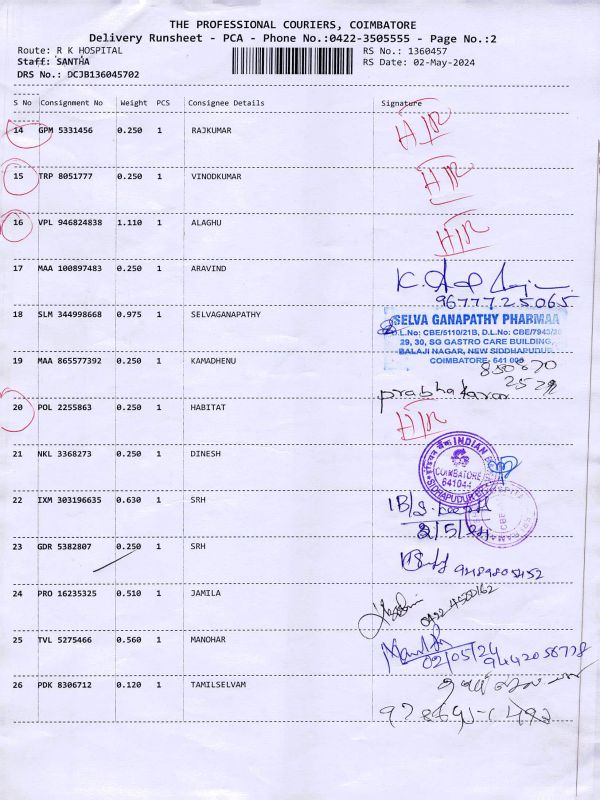 THE PROFESSIONAL COURIERS, COIMBATORE
Delivery Runsheet - PCA - Phone No.:0422-3505555 - Page No.:2
Route: R K HOSPITAL RS No.: 1360457
Staff: SANTHA RS Date: 02-May-2024
DRS No.: DCJB136045702
S No Consignment No Weight PCS Consignee Details Signature
14 GPM 5331456 0.250 1 RAJKUMAR
15 TRP 8051777 0.250 1 VINODKUMAR
16 VPL 946824838 1.110 1 ALAGHU
17 MAA 100897483 0.250 1 ARAVIND
9677725065
18 SLM 344998668 0.975 1 SELVAGANAPATHY
SELVA GANAPATHY PHARMAA
D.L.No: CBE/5110/21B, D.L.No: CBE/7943/20
29, 30, SG GASTRO CARE BUILDING,
BALAJI NAGAR, NEW SIDDHAPUDUR,
COIMBATORE- 641 000
19 MAA 865577392 0.250 1 KAMADHENU
prabhakaran
20 POL 2255863 0.250 1 HABITAT
21 NKL 3368273 0.250 1 DINESH
INDIAN
COIMBATORE
641044
22 IXM 303196635 0.630 1 SRH
23 GDR 5382807 0.250 1 SRH
24 PRO 16235325 0.510 1 JAMILA
0422 4500162
25 TVL 5275466 0.560 1 MANOHAR
02/05/24
26 PDK 8306712 0.120 1 TAMILSELVAM